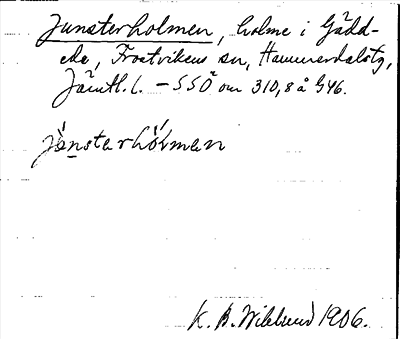 Junsterholmen, holme i Gädd-
ede, Frostvikens sn, Hammerdalstg,
Jämtl. l. — SSÖ om 310,8 å G46.
jänsterhólman
K. B. Wiklund 1906.